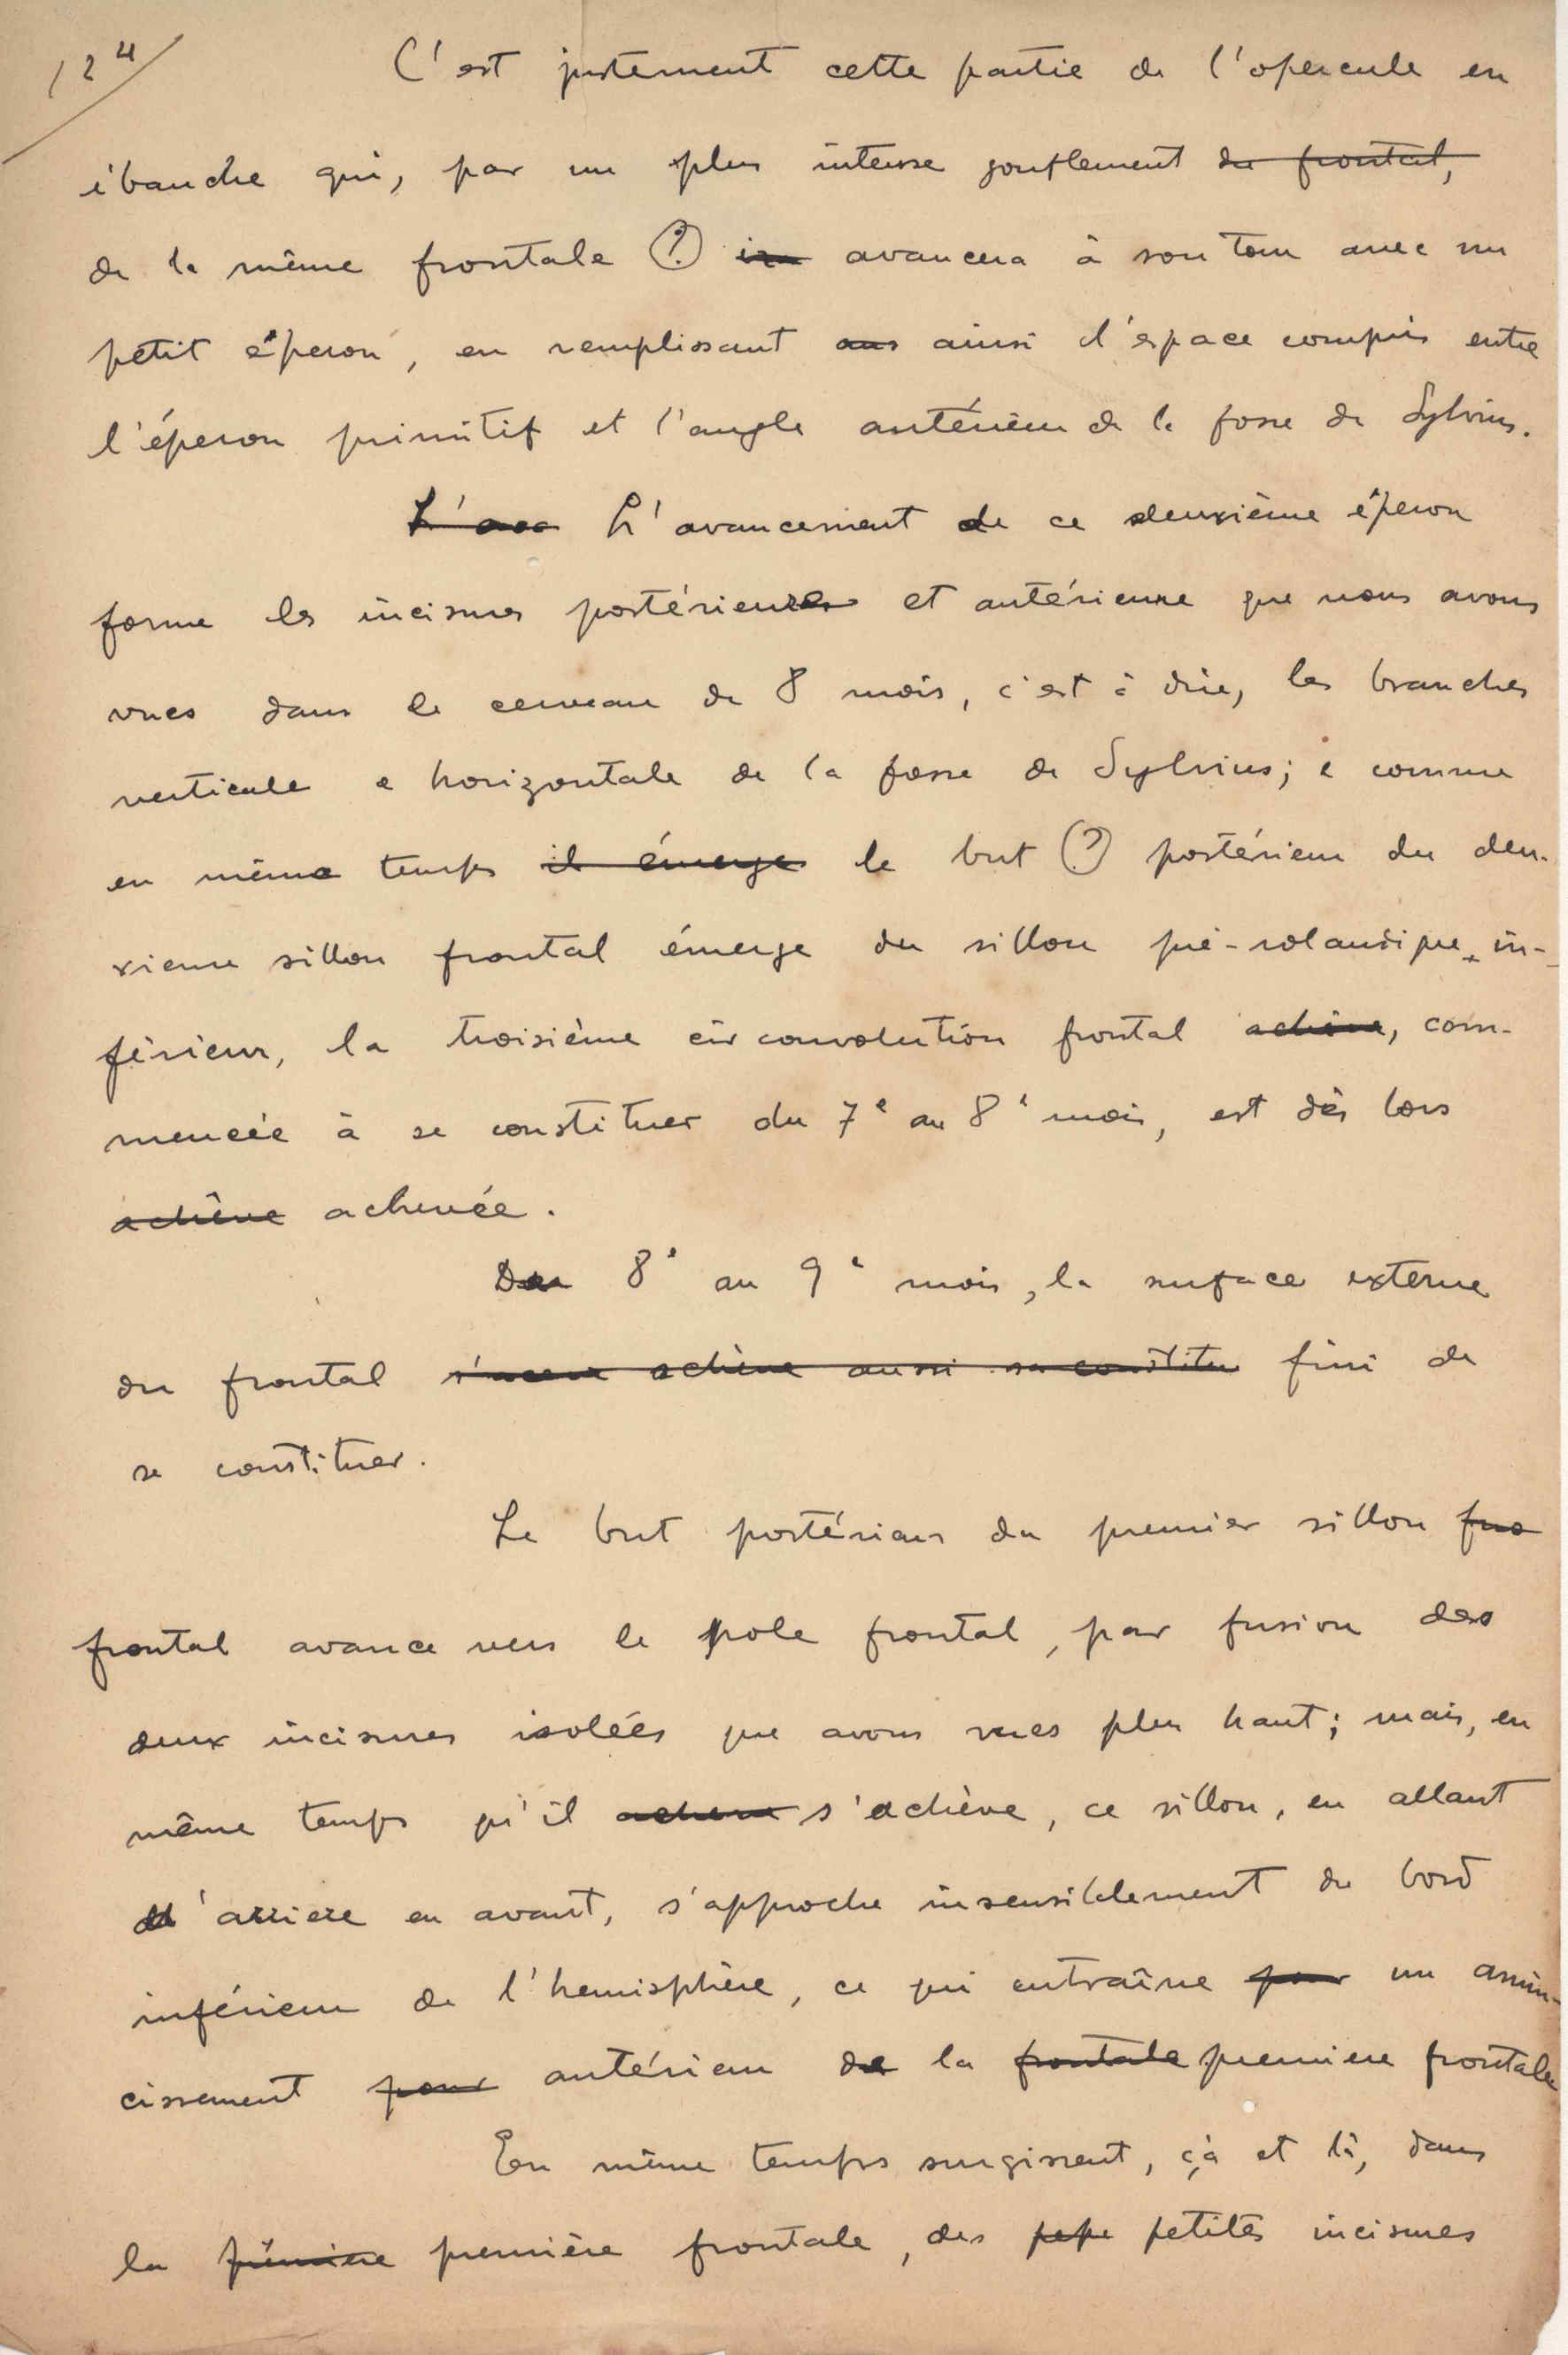 124
C'est justement cette partie de l'opercule en
ébauche qui, par un plus intense gonflement du frontal,
de la même frontale (?) avancera à son tour avec un
petit éperon, en remplissant ainsi l'espace compris entre
l'éperon primitif et l'angle antérieur de la fosse de Sylvius.
L'avancement de ce deuxième éperon
forme les incisures postérieure et antérieure que nous avons
vues dans le cerveau de 8 mois, c'est à dire, les branches
verticale e horizontale de la fosse de Sylvius; e comme
en même temps il émerge le but (?) postérieur du deu-
xieme sillon frontal émerge du sillon pré-rolandique in-
férieur, la troisième circonvolution frontal achève, com-
mencée à se constituer du 7e au 8e mois, est dès lors
achève achevée.
Du 8e au 9e mois, la surface externe
du frontal achève aussi sa constitu fini de
se constituer.
Le but postérieur du premier sillon fro
frontal avance vers le pole frontal, par fusion des
deux incisures isolées que avons vues plus haut; mais, en
même temps qu'il acheve s'achève, ce sillon, en allant
d'arriere en avant, s'approche insensiblement du bord
inférieur de l'hemisphère, ce qui entraîne pour un amin-
cissement pour antérieur de la frontale premiere frontale
En même temps surgissent, çà et là, dans
la première première frontale, des pepe petites incisures